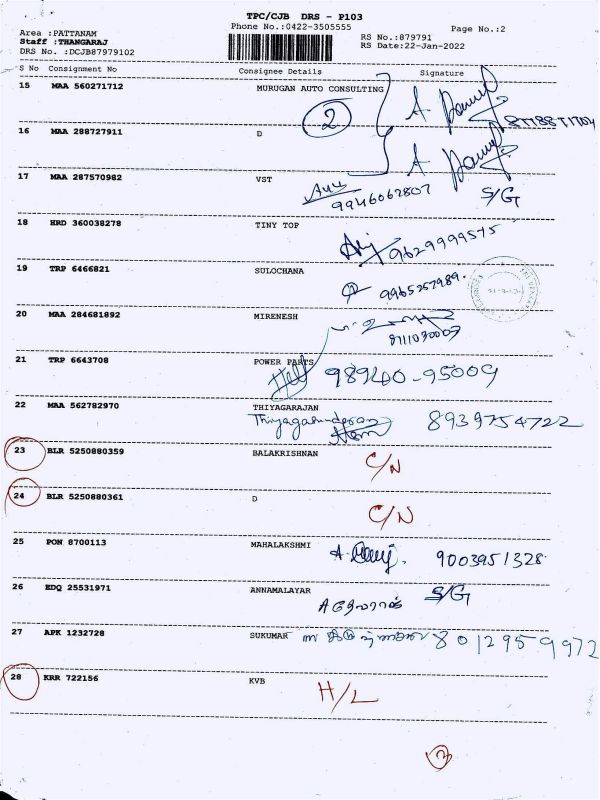 TPC/CJB DRS - P103
Phone No.:0422-3505555
Page No.:2
Area :PATTANAM
RS No.:879791
Staff :THANGARAJ
RS Date:22-Jan-2022
DRS No. :DCJB87979102
S No Consignment No Consignee Details Signature
15 MAA 560271712 MURUGAN AUTO CONSULTING
2
16 MAA 288727911 D
17 MAA 287570982 VST
9946062807 S/G
18 HRD 360038278 TINY TOP
9629999575
19 TRP 6466821 SULOCHANA
9965257989.
20 MAA 284681892 MIRENESH
21 TRP 6643708 POWER PARTS
98940-95009
22 MAA 562782970 THIYAGARAJAN
8939754722
23 BLR 5250880359 BALAKRISHNAN
C/N
24 BLR 5250880361 D
C/N
25 PON 8700113 MAHALAKSHMI
9003951328
26 EDQ 25531971 ANNAMALAYAR S/G
27 APK 1232728 SUKUMAR 8012959972
28 KRR 722156 KVB
H/L
3